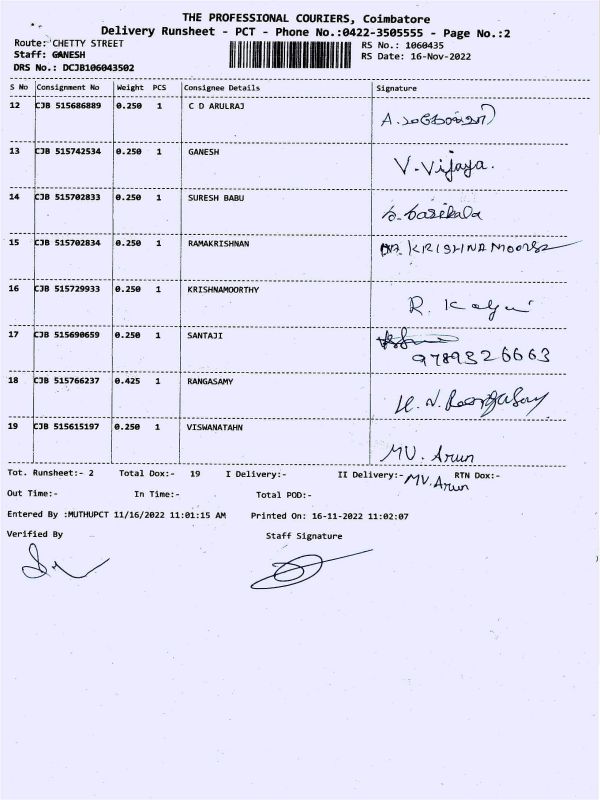 THE PROFESSIONAL COURIERS, Coimbatore
Delivery Runsheet - PCT - Phone No.:0422-3505555 - Page No.:2
Route: CHETTY STREET RS No.: 1060435
Staff: GANESH RS Date: 16-Nov-2022
DRS No.: DCJB106043502
S No Consignment No Weight PCS Consignee Details Signature
12 CJB 515686889 0.250 1 C D ARULRAJ
13 CJB 515742534 0.250 1 GANESH V. Vijaya.
14 CJB 515702833 0.250 1 SURESH BABU
15 CJB 515702834 0.250 1 RAMAKRISHNAN
16 CJB 515729933 0.250 1 KRISHNAMOORTHY
17 CJB 515690659 0.250 1 SANTAJI
9789326663
18 CJB 515766237 0.425 1 RANGASAMY
19 CJB 515615197 0.250 1 VISWANATAHN MV. Arun
Tot. Runsheet:- 2 Total Dox:- 19 I Delivery:- II Delivery:- MV. Arun RTN Dox:-
Out Time:- In Time:- Total POD:-
Entered By :MUTHUPCT 11/16/2022 11:01:15 AM Printed On: 16-11-2022 11:02:07
Verified By Staff Signature